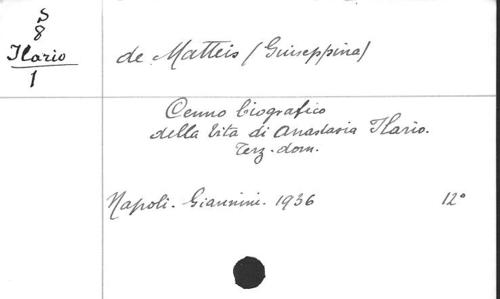 S
8
Ilario
1
de Matteis (Giuseppina)
Cenno biografico
della Vita di Anastasia Ilario.
Terz. dom.
Napoli. Giannini. 1936 12°